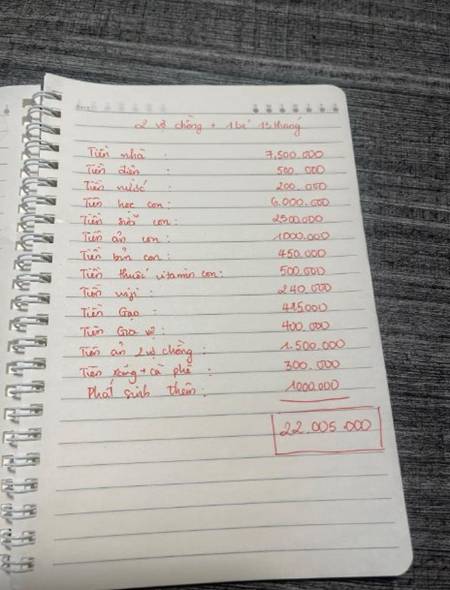 2 vợ chồng + 1 bé 13 tháng
Tiền nhà : 7,500.000
Tiền điện : 500.000
Tiền nước : 200.000
Tiền học con : 6.000.000
Tiền sữa con : 2500.000
Tiền ăn con : 1000.000
Tiền bỉm con : 450.000
Tiền thuốc vitamin con : 500.000
Tiền wifi : 240.000
Tiền Gạo : 415.000
Tiền Gia vị : 400.000
Tiền ăn 2 vợ chồng : 1.500.000
Tiền xăng + cà phê : 300.000
Phát sinh thêm : 1000.000
22.005.000